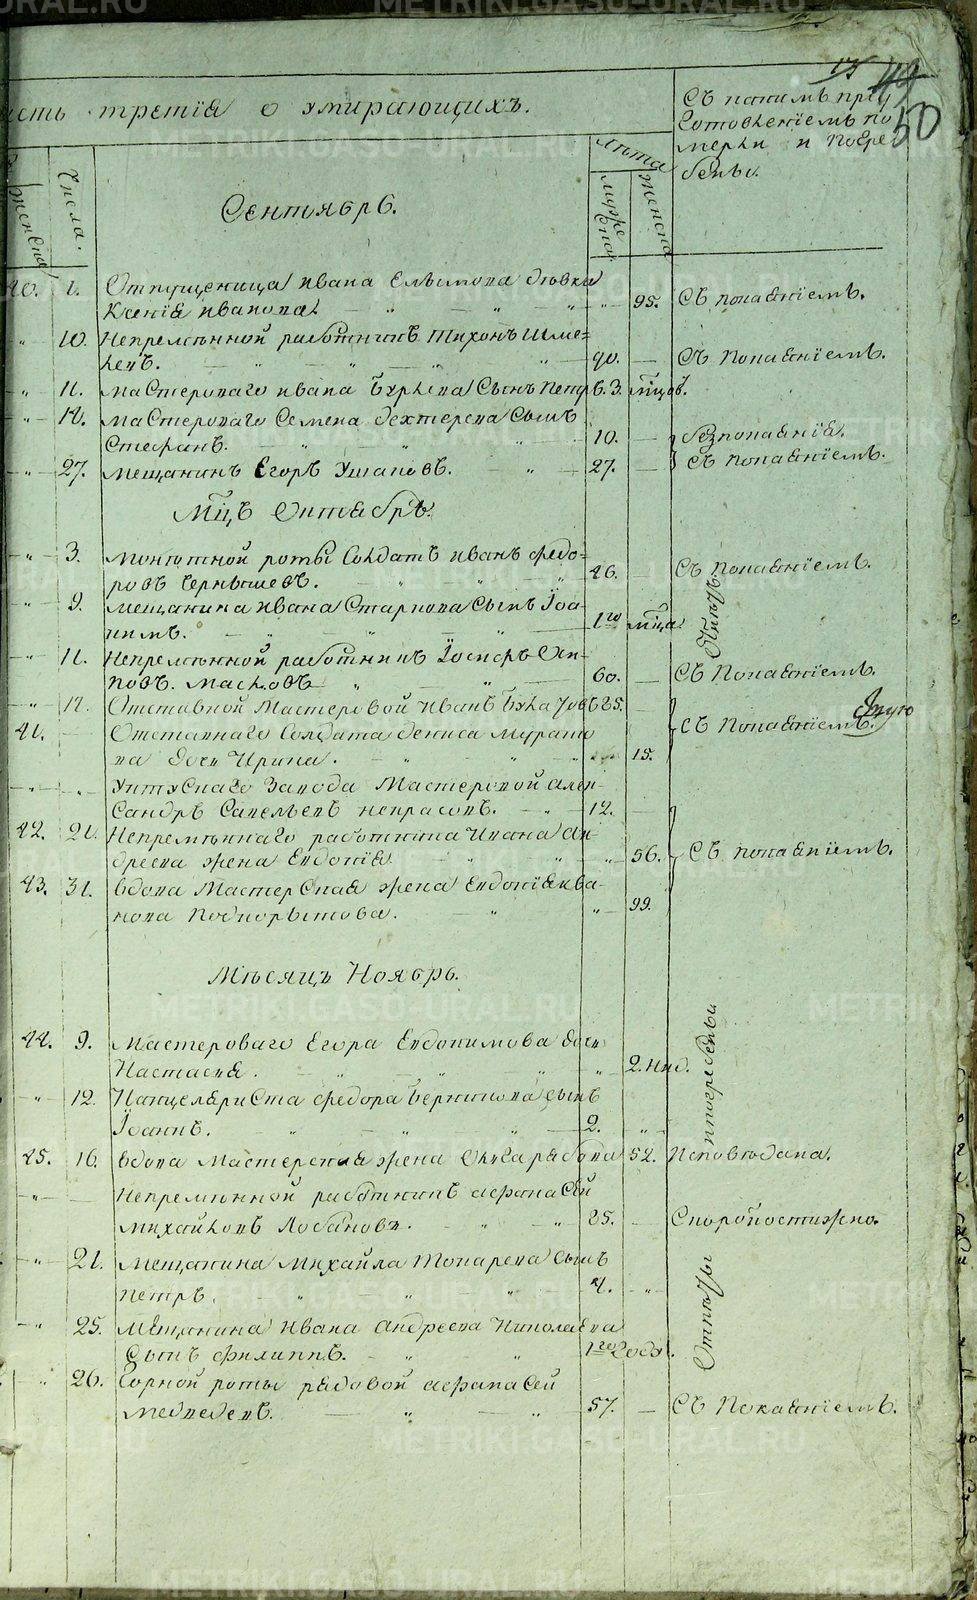 METRIKI.GASO-URAL.RU
15 49
50
асть третія о умирающихъ.
Съ какимъ пріу
готовленіемъ по
мерли и погре
бены.
Числа.
Женска
лѣта
муже
ска
женска
Сентябрь.
40. 1. Отпущеница Ивана дѣвка
Ксенія Иванова 95. Съ покаяніемъ.
10. Непремѣнной работникъ Тихонъ Шме-
левъ. 90. Съ покаяніемъ.
11. Мастероваго Ивана сынъ Петръ. 3. мцов.
12. Мастероваго Семена Дехтерева сынъ
Стефанъ. 10. безпокаянія.
27. Мещанинъ Егоръ Ушаковъ. 27. Съ покаяніемъ.
Мцъ Октябрь.
3. Монетной роты солдатъ Иванъ Федо-
ровъ Чернышевъ. 46. Съ покаяніемъ.
9. Мещанина Ивана Старкова сынъ Іоа-
кимъ. 1го мца.
11. Непремѣнной работникъ Іосифъ Оси-
повъ. Масловъ 60. Съ покаяніемъ.
12. Отставной Мастеровой Иванъ 85.
Съ покаяніемъ.
41. Отставнаго солдата Дениса Мурато
ва дочь Ирина. 15.
Уктускаго завода Мастеровой Алек-
сандръ Савельевъ Некрасовъ. 12.
42. 21. Непремѣннаго работника Ивана Ан-
дреева жена Евдокія 56. Съ покаяніемъ.
43. 31. Вдова Мастерская жена Евдокія Ива-
нова Подкорытова. 99.
Мѣсяцъ Ноябрь.
44. 9. Мастероваго Егора Евдокимова дочь
Настасея. 2. нед.
12. Канцеляриста Федора сынъ
Іоаннъ. 2.
45. 16. Вдова Мастерская жена 52. Исповѣдана.
Непремѣнной работникъ Афанасей
Михайловъ Лобановъ. 25. Скоропостижно.
21. Мещанина Михайла Токарева сынъ
Петръ. 4.
25. Мещанина Ивана Андреева Николаева
сынъ Филиппъ. 1го году.
26. Горной роты рядовой Афанасей
Медведевъ. 57. Съ Покаяніемъ.
Отпѣты и погребены